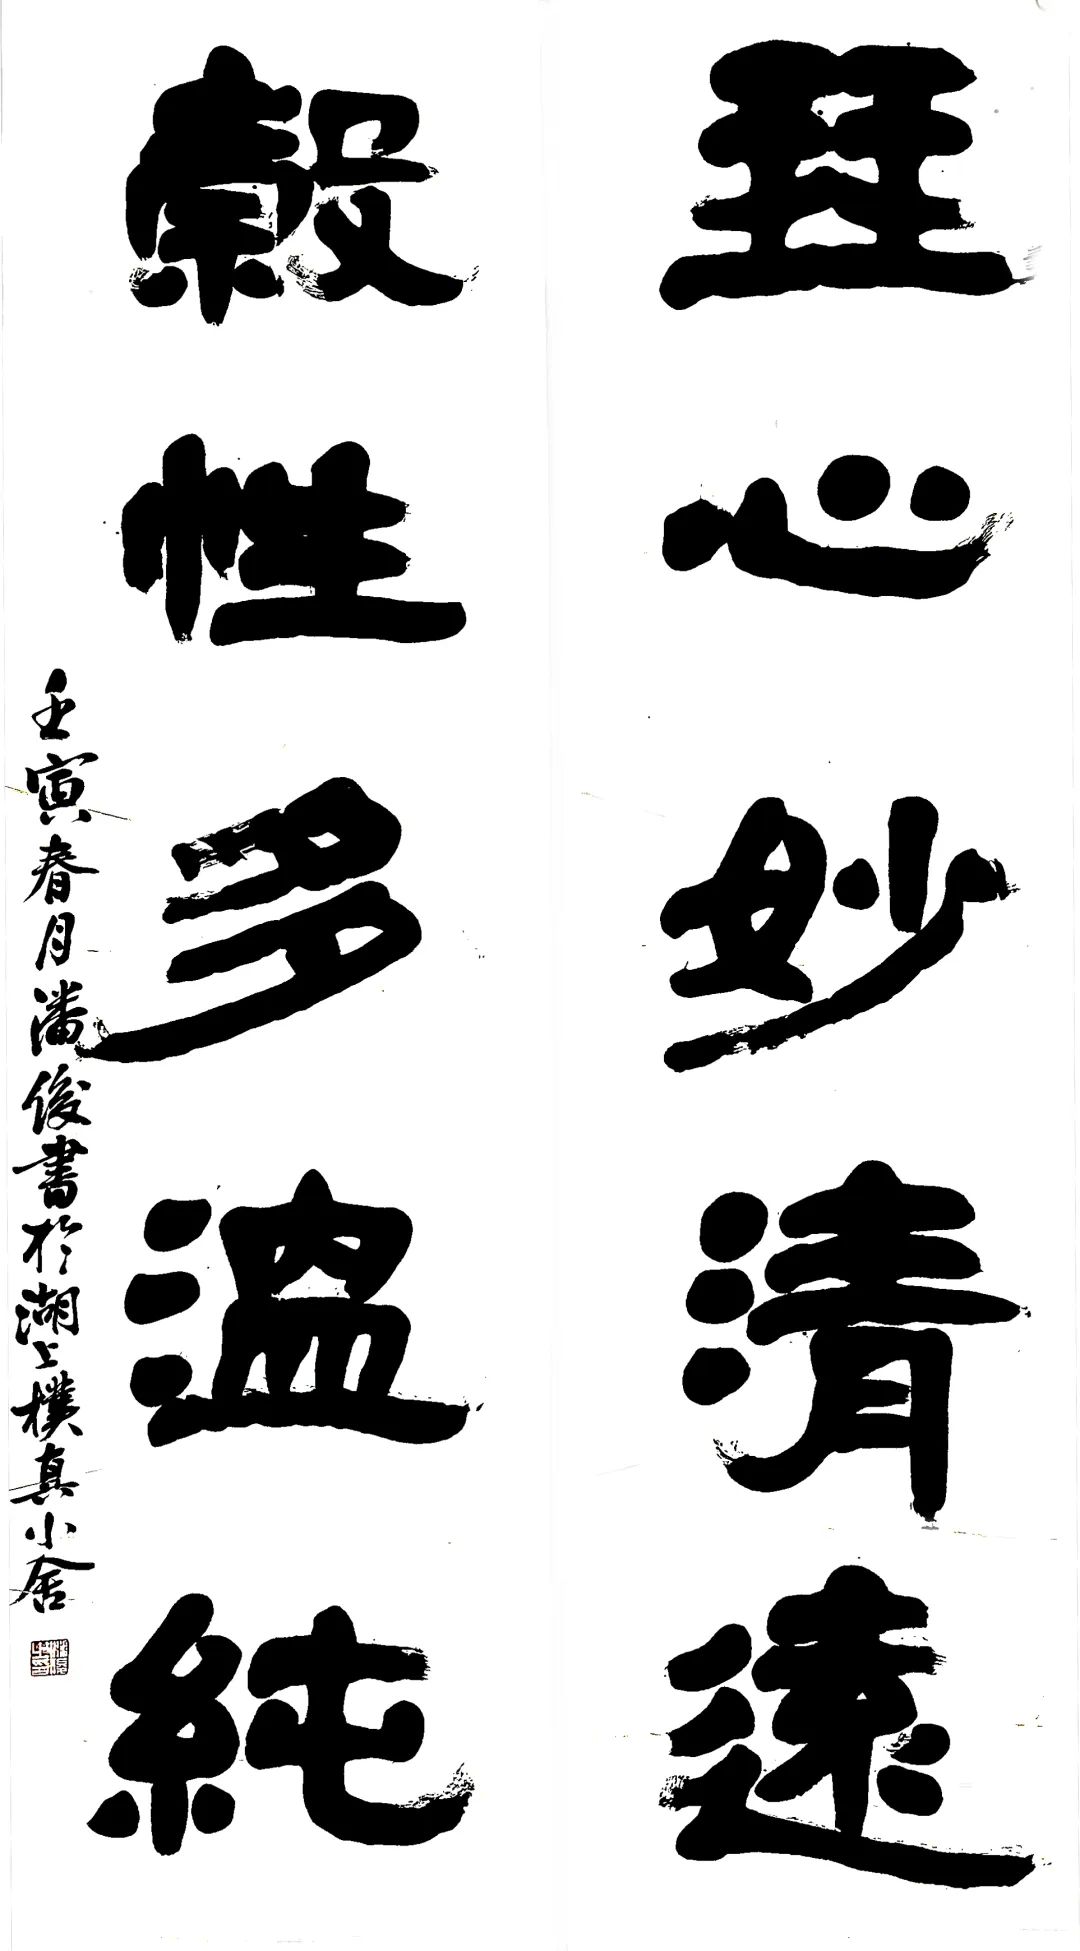 琴心妙清遠
穀性多溫純
壬寅春月潘俊書於湖上樸真小舍